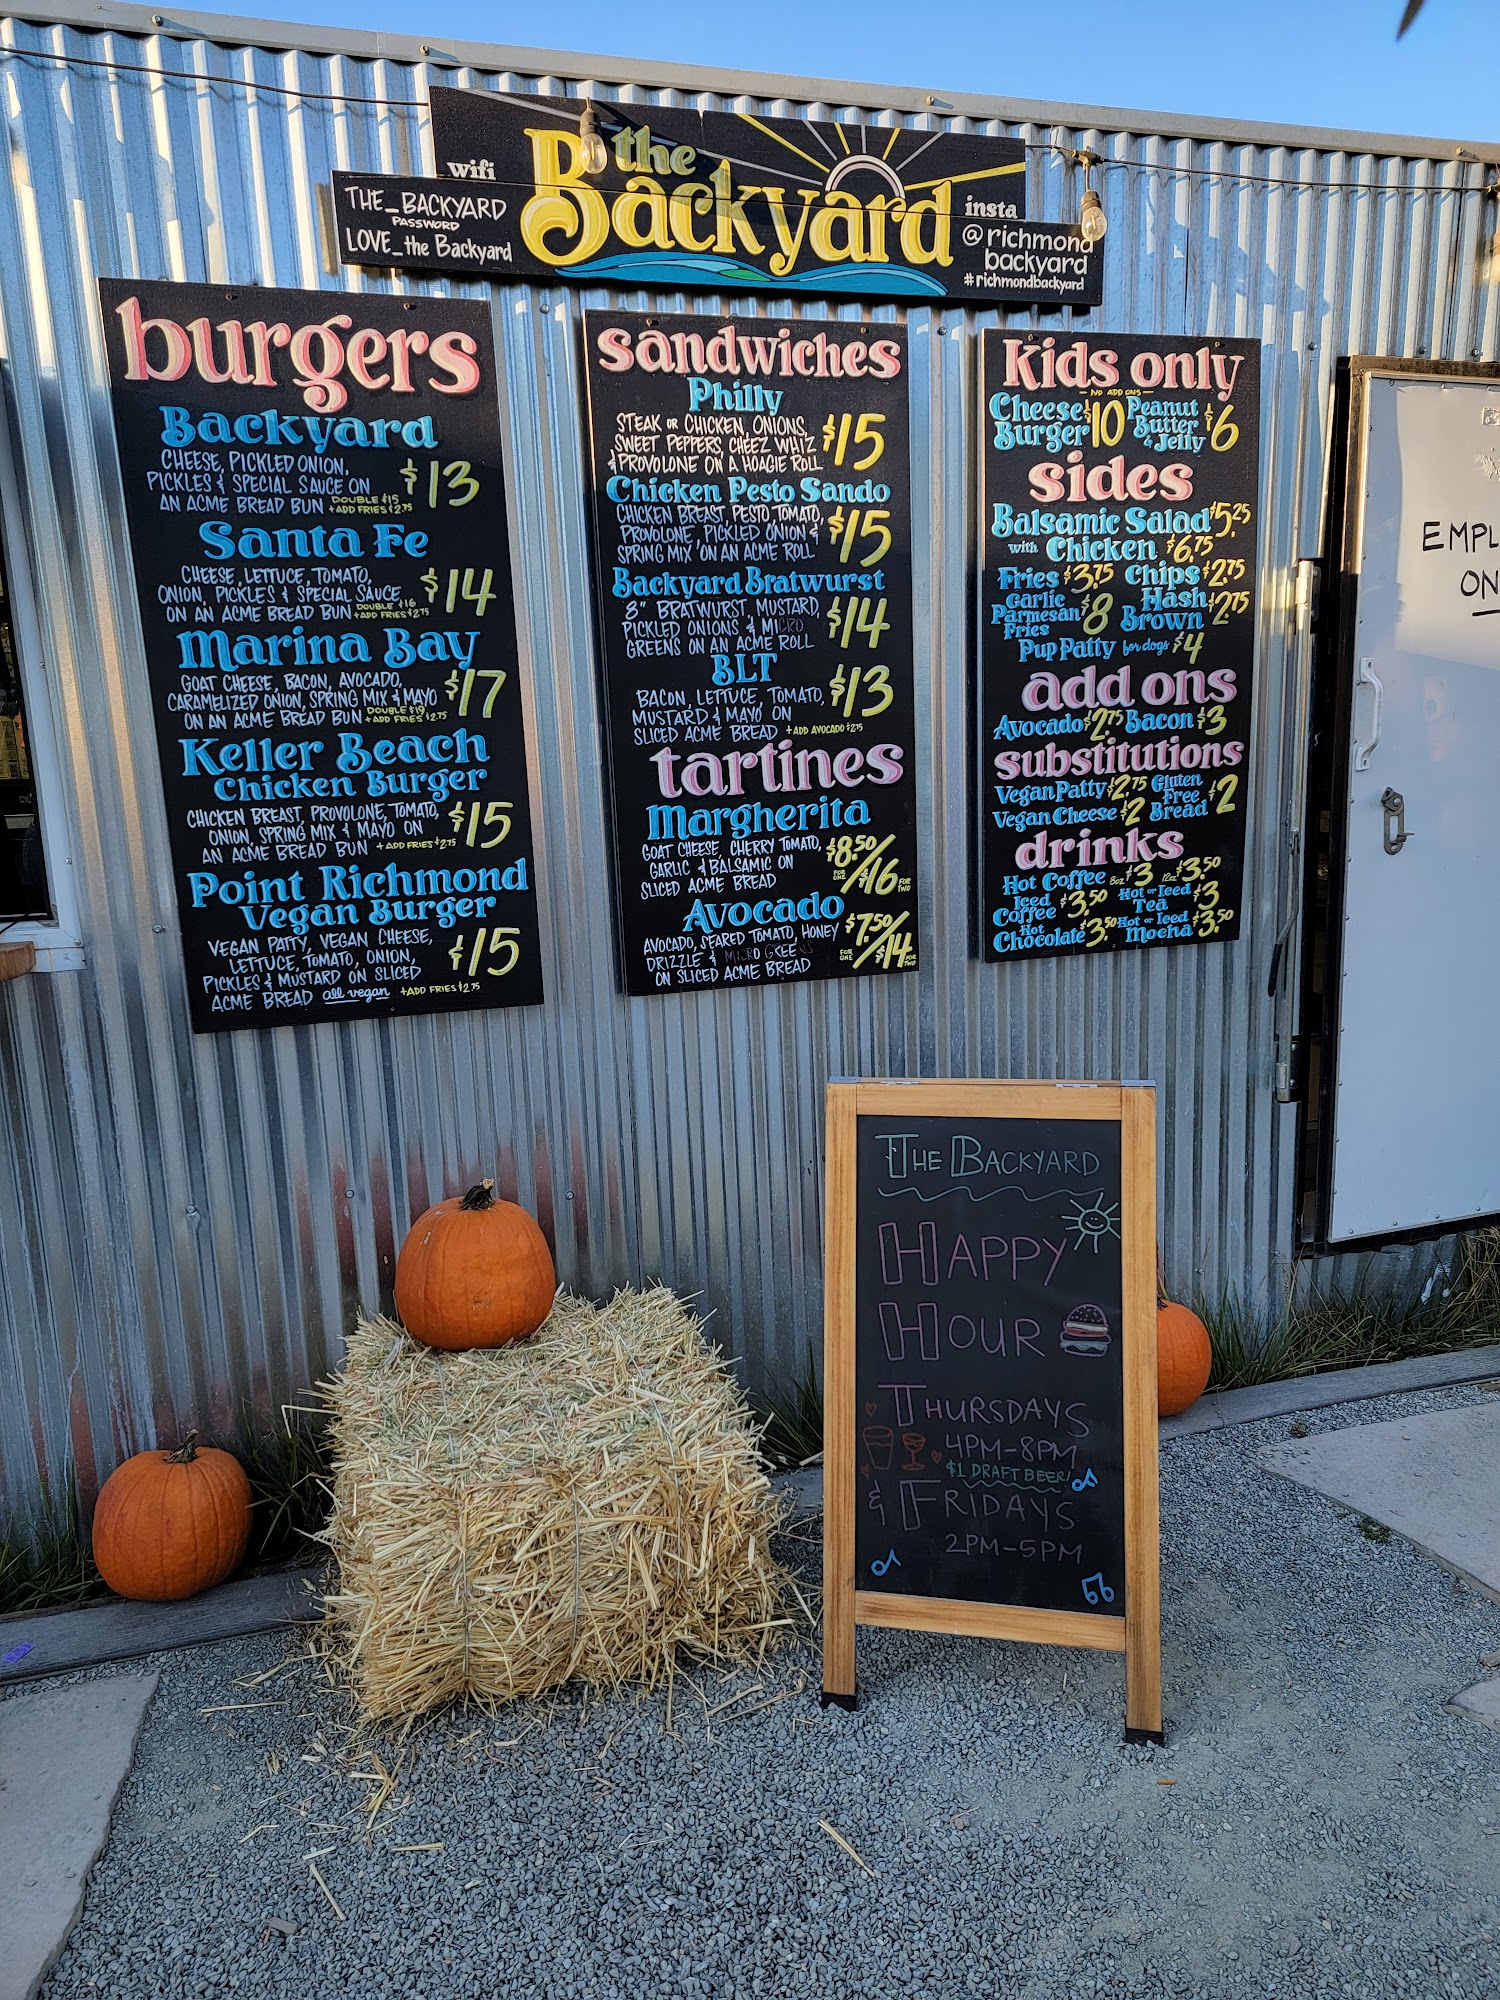 wifi
THE_BACKYARD
PASSWORD
LOVE_the Backyard
the
Backyard
insta
@richmond
backyard
#richmondbackyard
burgers
Backyard
CHEESE, PICKLED ONION,
PICKLES & SPECIAL SAUCE ON
AN ACME BREAD BUN
DOUBLE $15
+ADD FRIES $2.75
$13
Santa Fe
CHEESE, LETTUCE, TOMATO,
ONION, PICKLES & SPECIAL SAUCE
ON AN ACME BREAD BUN
DOUBLE $16
+ADD FRIES $2.75
$14
Marina Bay
GOAT CHEESE, BACON, AVOCADO,
CARAMELIZED ONION, SPRING MIX & MAYO
ON AN ACME BREAD BUN
DOUBLE $19
+ADD FRIES $2.75
$17
Keller Beach
Chicken Burger
CHICKEN BREAST, PROVOLONE, TOMATO,
ONION, SPRING MIX & MAYO ON
AN ACME BREAD BUN +ADD FRIES $2.75
$15
Point Richmond
Vegan Burger
VEGAN PATTY, VEGAN CHEESE,
LETTUCE, TOMATO, ONION,
PICKLES & MUSTARD ON SLICED
ACME BREAD all vegan +ADD FRIES $2.75
$15
sandwiches
Philly
STEAK OR CHICKEN, ONIONS,
SWEET PEPPERS, CHEEZ WHIZ
& PROVOLONE ON A HOAGIE ROLL
$15
Chicken Pesto Sando
CHICKEN BREAST, PESTO, TOMATO,
PROVOLONE, PICKLED ONION &
SPRING MIX ON AN ACME ROLL
$15
Backyard Bratwurst
8" BRATWURST, MUSTARD,
PICKLED ONIONS & MICRO
GREENS ON AN ACME ROLL
$14
BLT
BACON, LETTUCE, TOMATO,
MUSTARD & MAYO ON
SLICED ACME BREAD +ADD AVOCADO $2.75
$13
tartines
Margherita
GOAT CHEESE, CHERRY TOMATO,
GARLIC & BALSAMIC ON
SLICED ACME BREAD
$8.50 FOR ONE / $16 FOR TWO
Avocado
AVOCADO, SEARED TOMATO, HONEY
DRIZZLE & MICRO GREENS
ON SLICED ACME BREAD
$7.50 FOR ONE / $14 FOR TWO
Kids only
- NO ADD ONS -
Cheese Burger $10 Peanut Butter & Jelly $6
sides
Balsamic Salad $5.25
with Chicken $6.75
Fries $3.75 Chips $2.75
Garlic Parmesan Fries $8 Hash Brown $2.75
Pup Patty for dogs $4
add ons
Avocado $2.75 Bacon $3
substitutions
Vegan Patty $2.75 Gluten Free Bread $2
Vegan Cheese $2
drinks
Hot Coffee 8oz $3 12oz $3.50
Iced Coffee $3.50 Hot or Iced Tea $3
Hot Chocolate $3.50 Hot or Iced Mocha $3.50
EMPL
ON
THE BACKYARD
HAPPY
HOUR
THURSDAYS
4PM-8PM
$1 DRAFT BEER!
& FRIDAYS
2PM-5PM